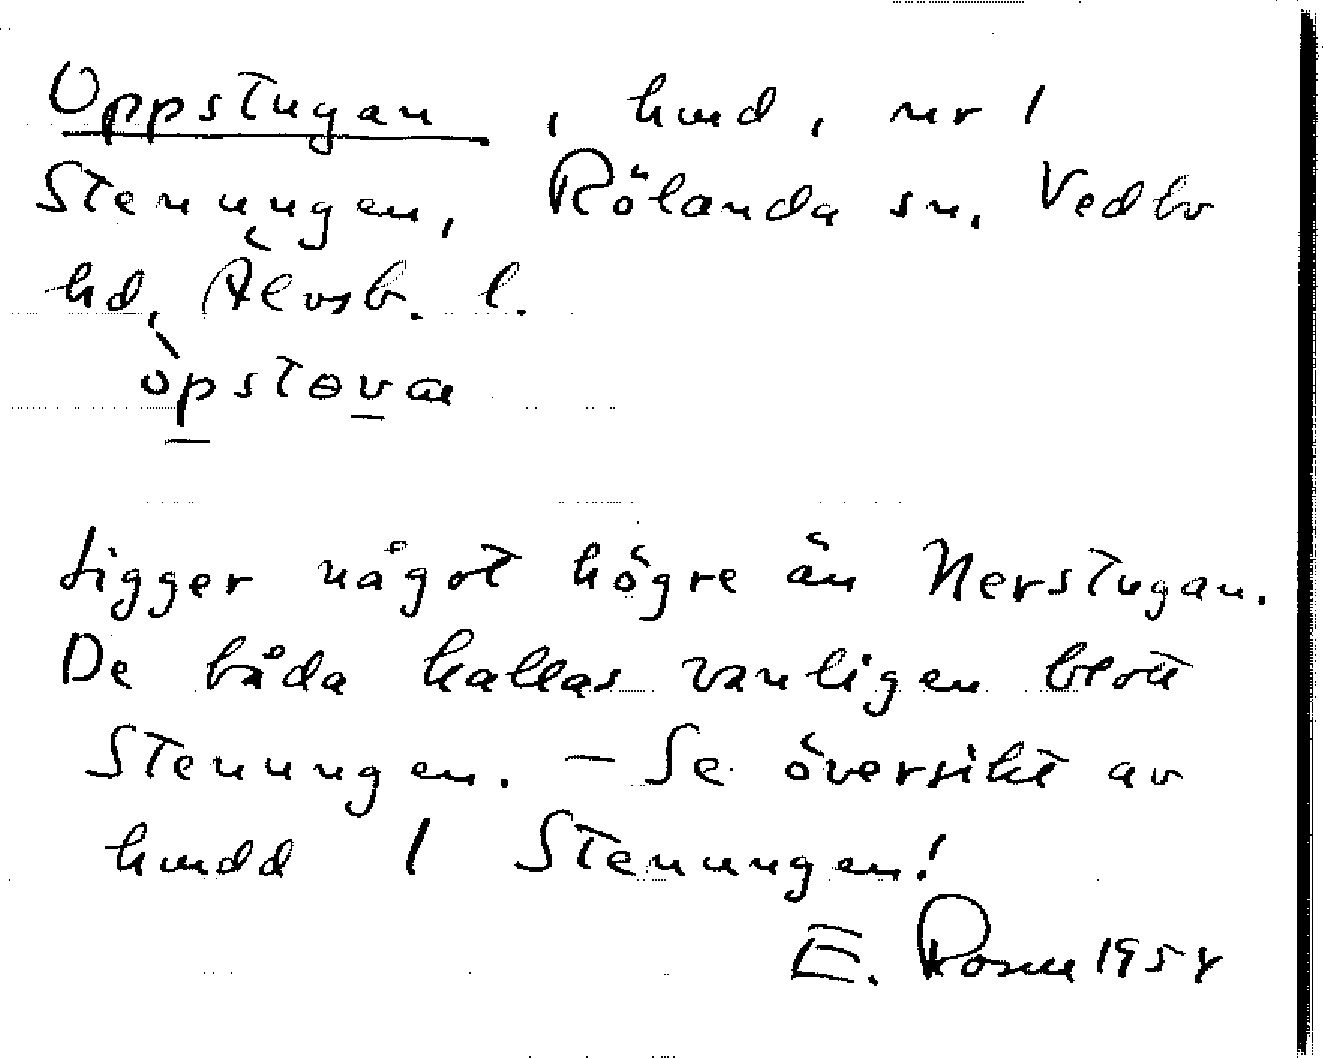 Oppstugan, hmd, nr 1
Stenungen, Rölanda sn. Vedbo
hd, Älvsb. l.
òpstɵvæ
Ligger något högre än Nerstugan.
De båda kallas vanligen blott
Stenungen. – Se översikt av
hmdd 1 Stenungen!
E. 1954